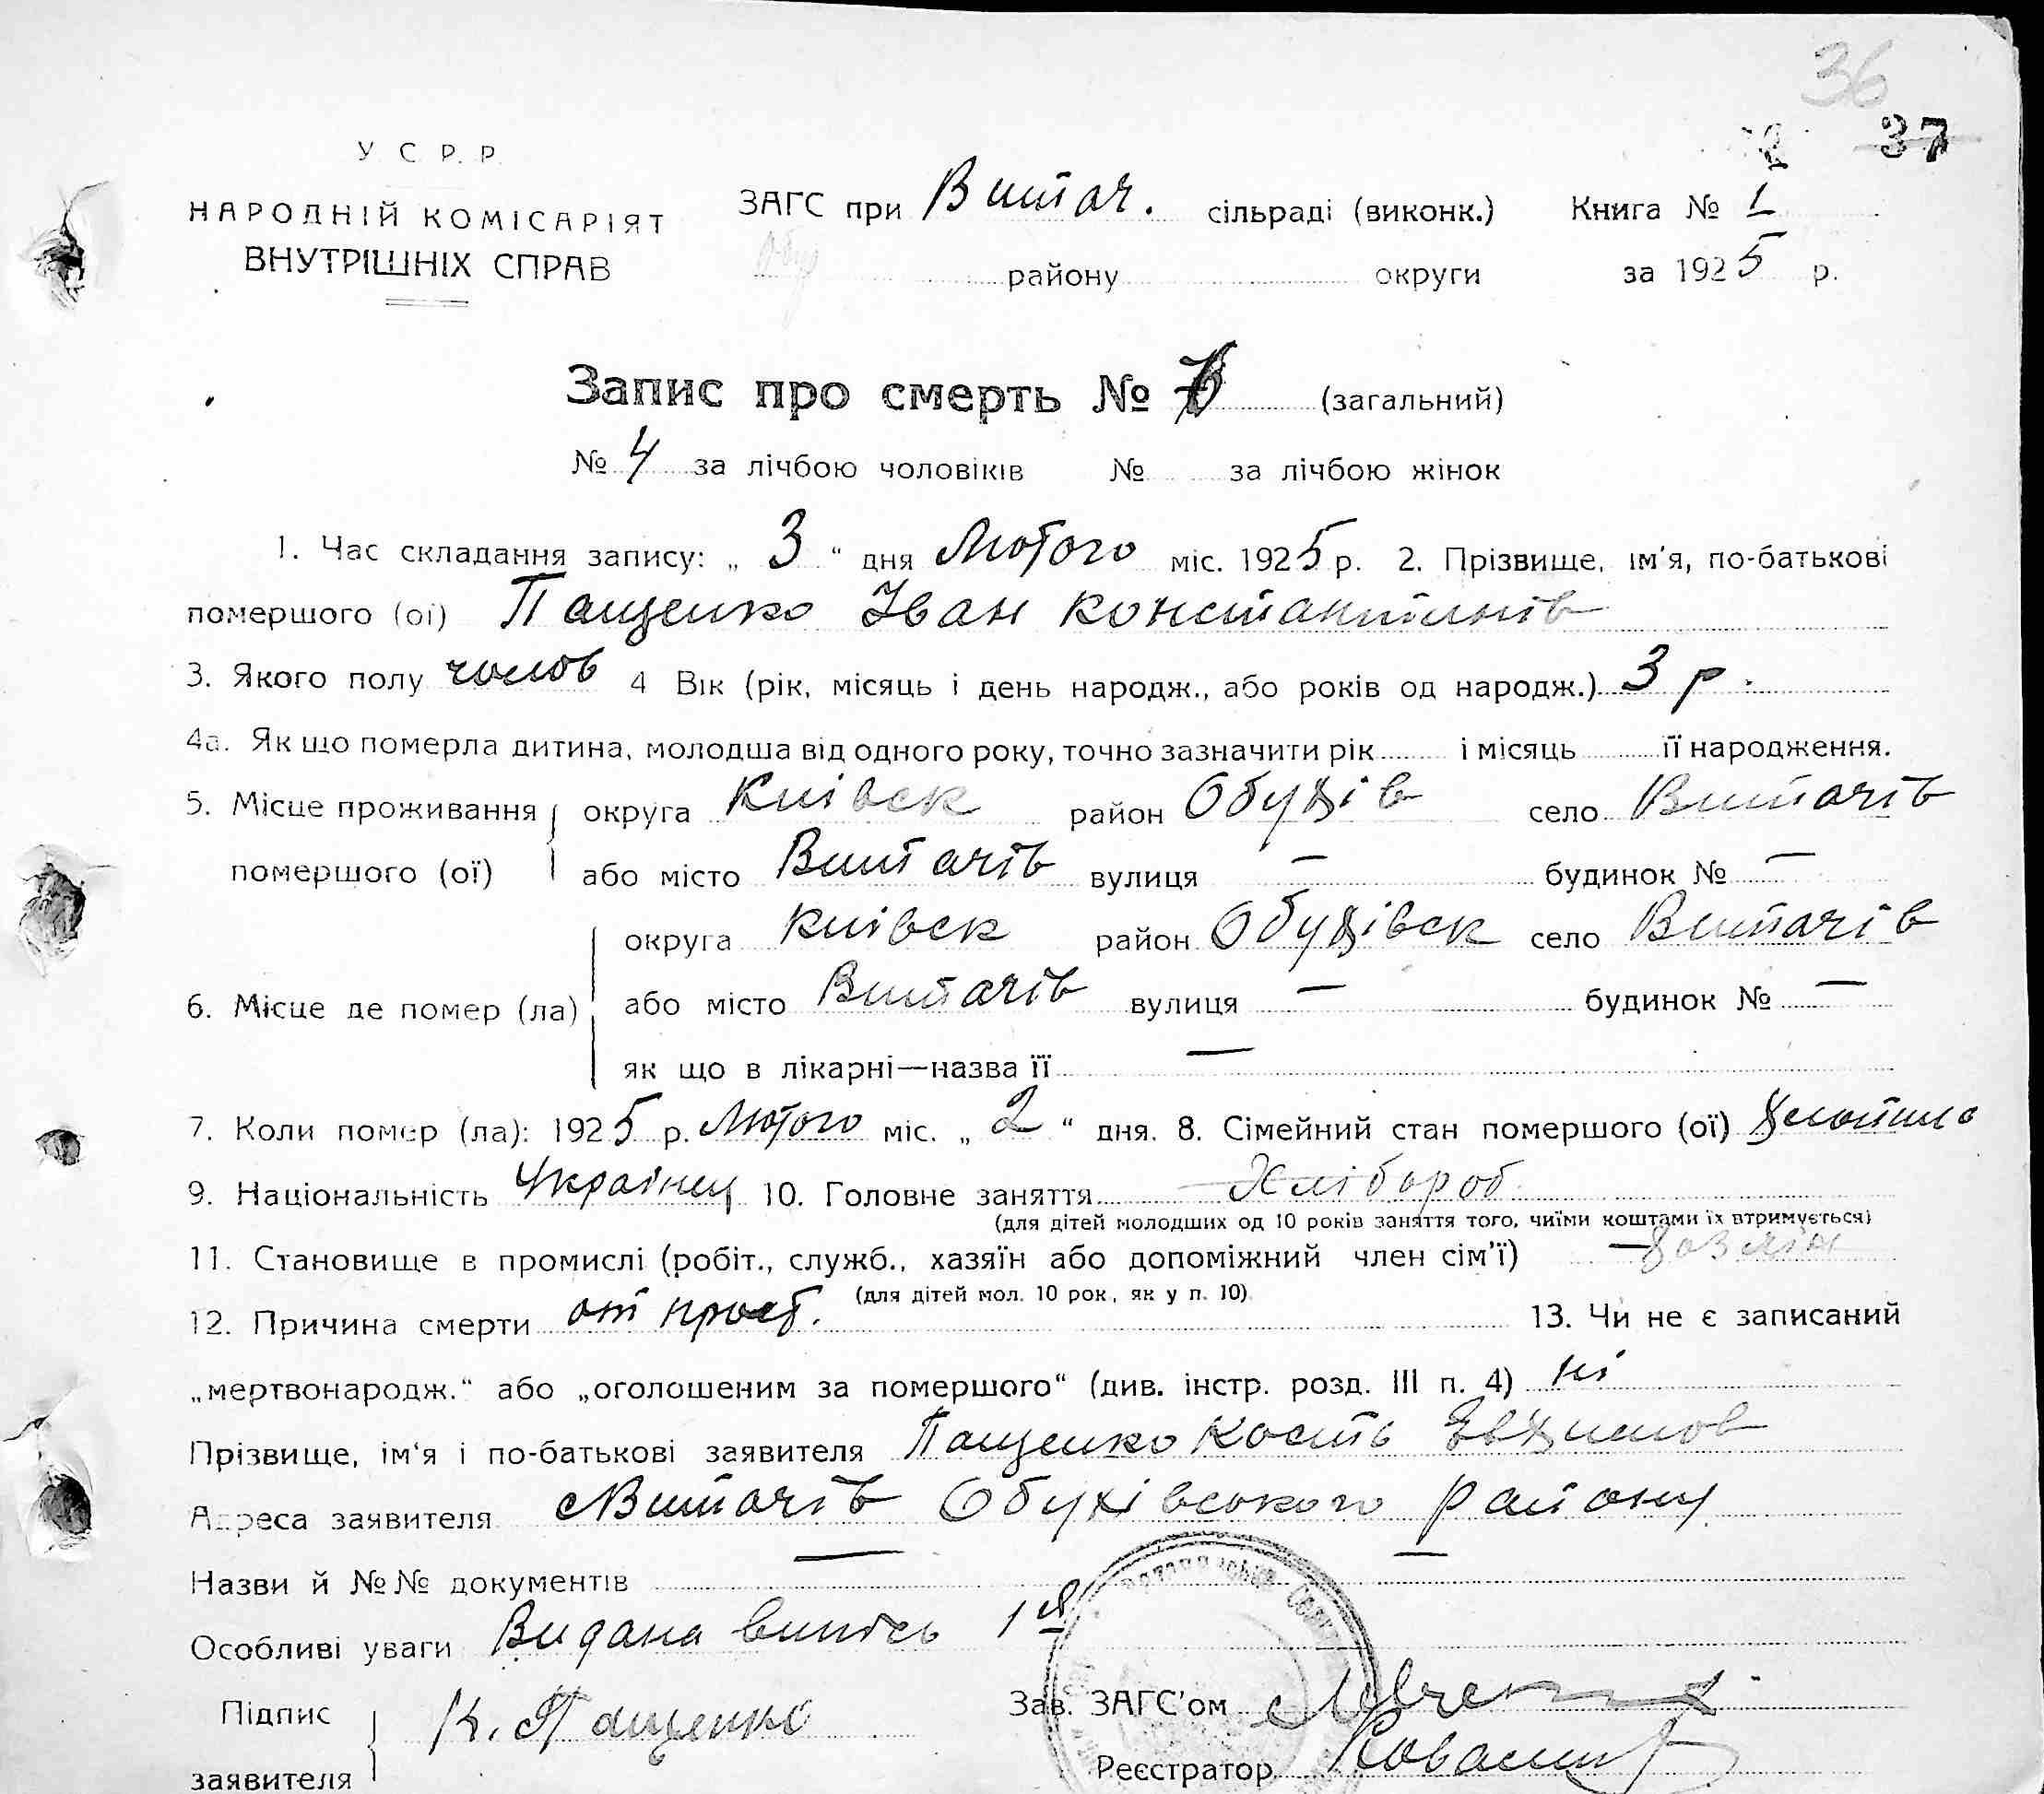 36
37
У. С. Р. Р.
НАРОДНІЙ КОМІСАРІЯТ
ВНУТРІШНІХ СПРАВ
ЗАГС при Витач. сільраді (виконк.) Книга № 1
Обух району округи за 1925 р.
Запис про смерть № (загальний)
№ 4 за лічбою чоловіків № за лічбою жінок
1. Час складання запису: „ 3 “ дня Лютого міс. 1925 р. 2. Прізвище, ім'я, по-батькові
помершого (ої) Пащенко Іван Константинів
3. Якого полу чолов 4 Вік (рік, місяць і день народж., або років од народж.) 3 р.
4а. Як що померла дитина, молодша від одного року, точно зазначити рік і місяць її народження.
5. Місце проживання округа Київск район Обухів село Витачів
помершого (ої) або місто Витачів вулиця — будинок № —
округа Київск район Обухівск село Витачів
6. Місце де помер (ла) або місто Витачів вулиця — будинок № —
як що в лікарні—назва її —
7. Коли помер (ла): 1925 р. Лютого міс. „ 2 “ дня. 8. Сімейний стан помершого (ої)
9. Національність Українец 10. Головне заняття Хлібороб
(для дітей молодших од 10 років заняття того, чиїми коштами їх втримується)
11. Становище в промислі (робіт., служб., хазяїн або допоміжний член сім'ї) — хозяїн
(для дітей мол. 10 рок, як у п. 10)
12. Причина смерти от прост. 13. Чи не є записаний
„мертвонародж.“ або „оголошеним за помершого“ (див. інстр. розд. III п. 4) ні
Прізвище, ім'я і по-батькові заявителя Пащенко Кость Евхимов
Адреса заявителя с Витачів Обухівського району
Назви й №№ документів — —
Особливі уваги Видана випись 1я
Підпис заявителя К. Пащенко
Зав. ЗАГС'ом
Реєстратор